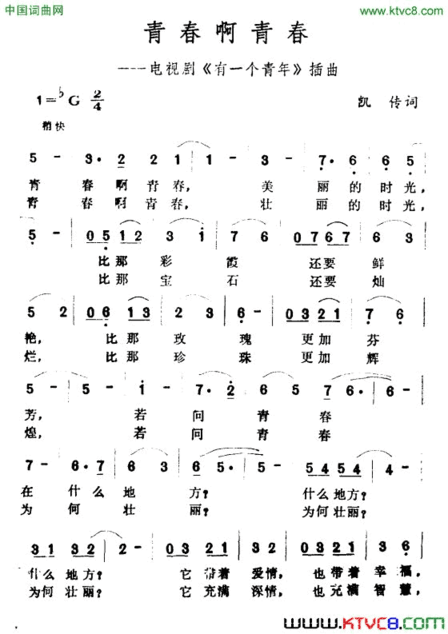 中国词曲网 www.ktvc8.com
青春啊青春
----电视剧《有一个青年》插曲
1=♭G 2/4 凯 传词
稍快
5 - 3· 2 2 1 1 - 3 - 7· 6 6 5
青 春啊青春, 美 丽的时光,
青 春啊青春, 壮 丽的时光,
5 - 0512 3 1 5 - 0767 6 3
比那彩 霞 还要鲜
比那宝 石 还要灿
5 2 06 13 2 3 5 - 0321 76
艳, 比那玫 瑰 更加芬
烂, 比那珍 珠 更加辉
5 - 5 - 1 - 7·2 6 5·765 6 -
芳, 若 问 青 春
煌, 若 问 青 春
7 - 6·7 6 3 5 - 5 - 5454
在 什么地 方? 什么地方?
为 何壮 丽? 为何壮丽?
31 32 2 - 03 21 5 1 03 21 3 6·
什么地方? 它 带着 爱情, 也带着 幸福,
为何壮丽? 它 充满 深情, 也充满 智慧,
www.KTVC8.com